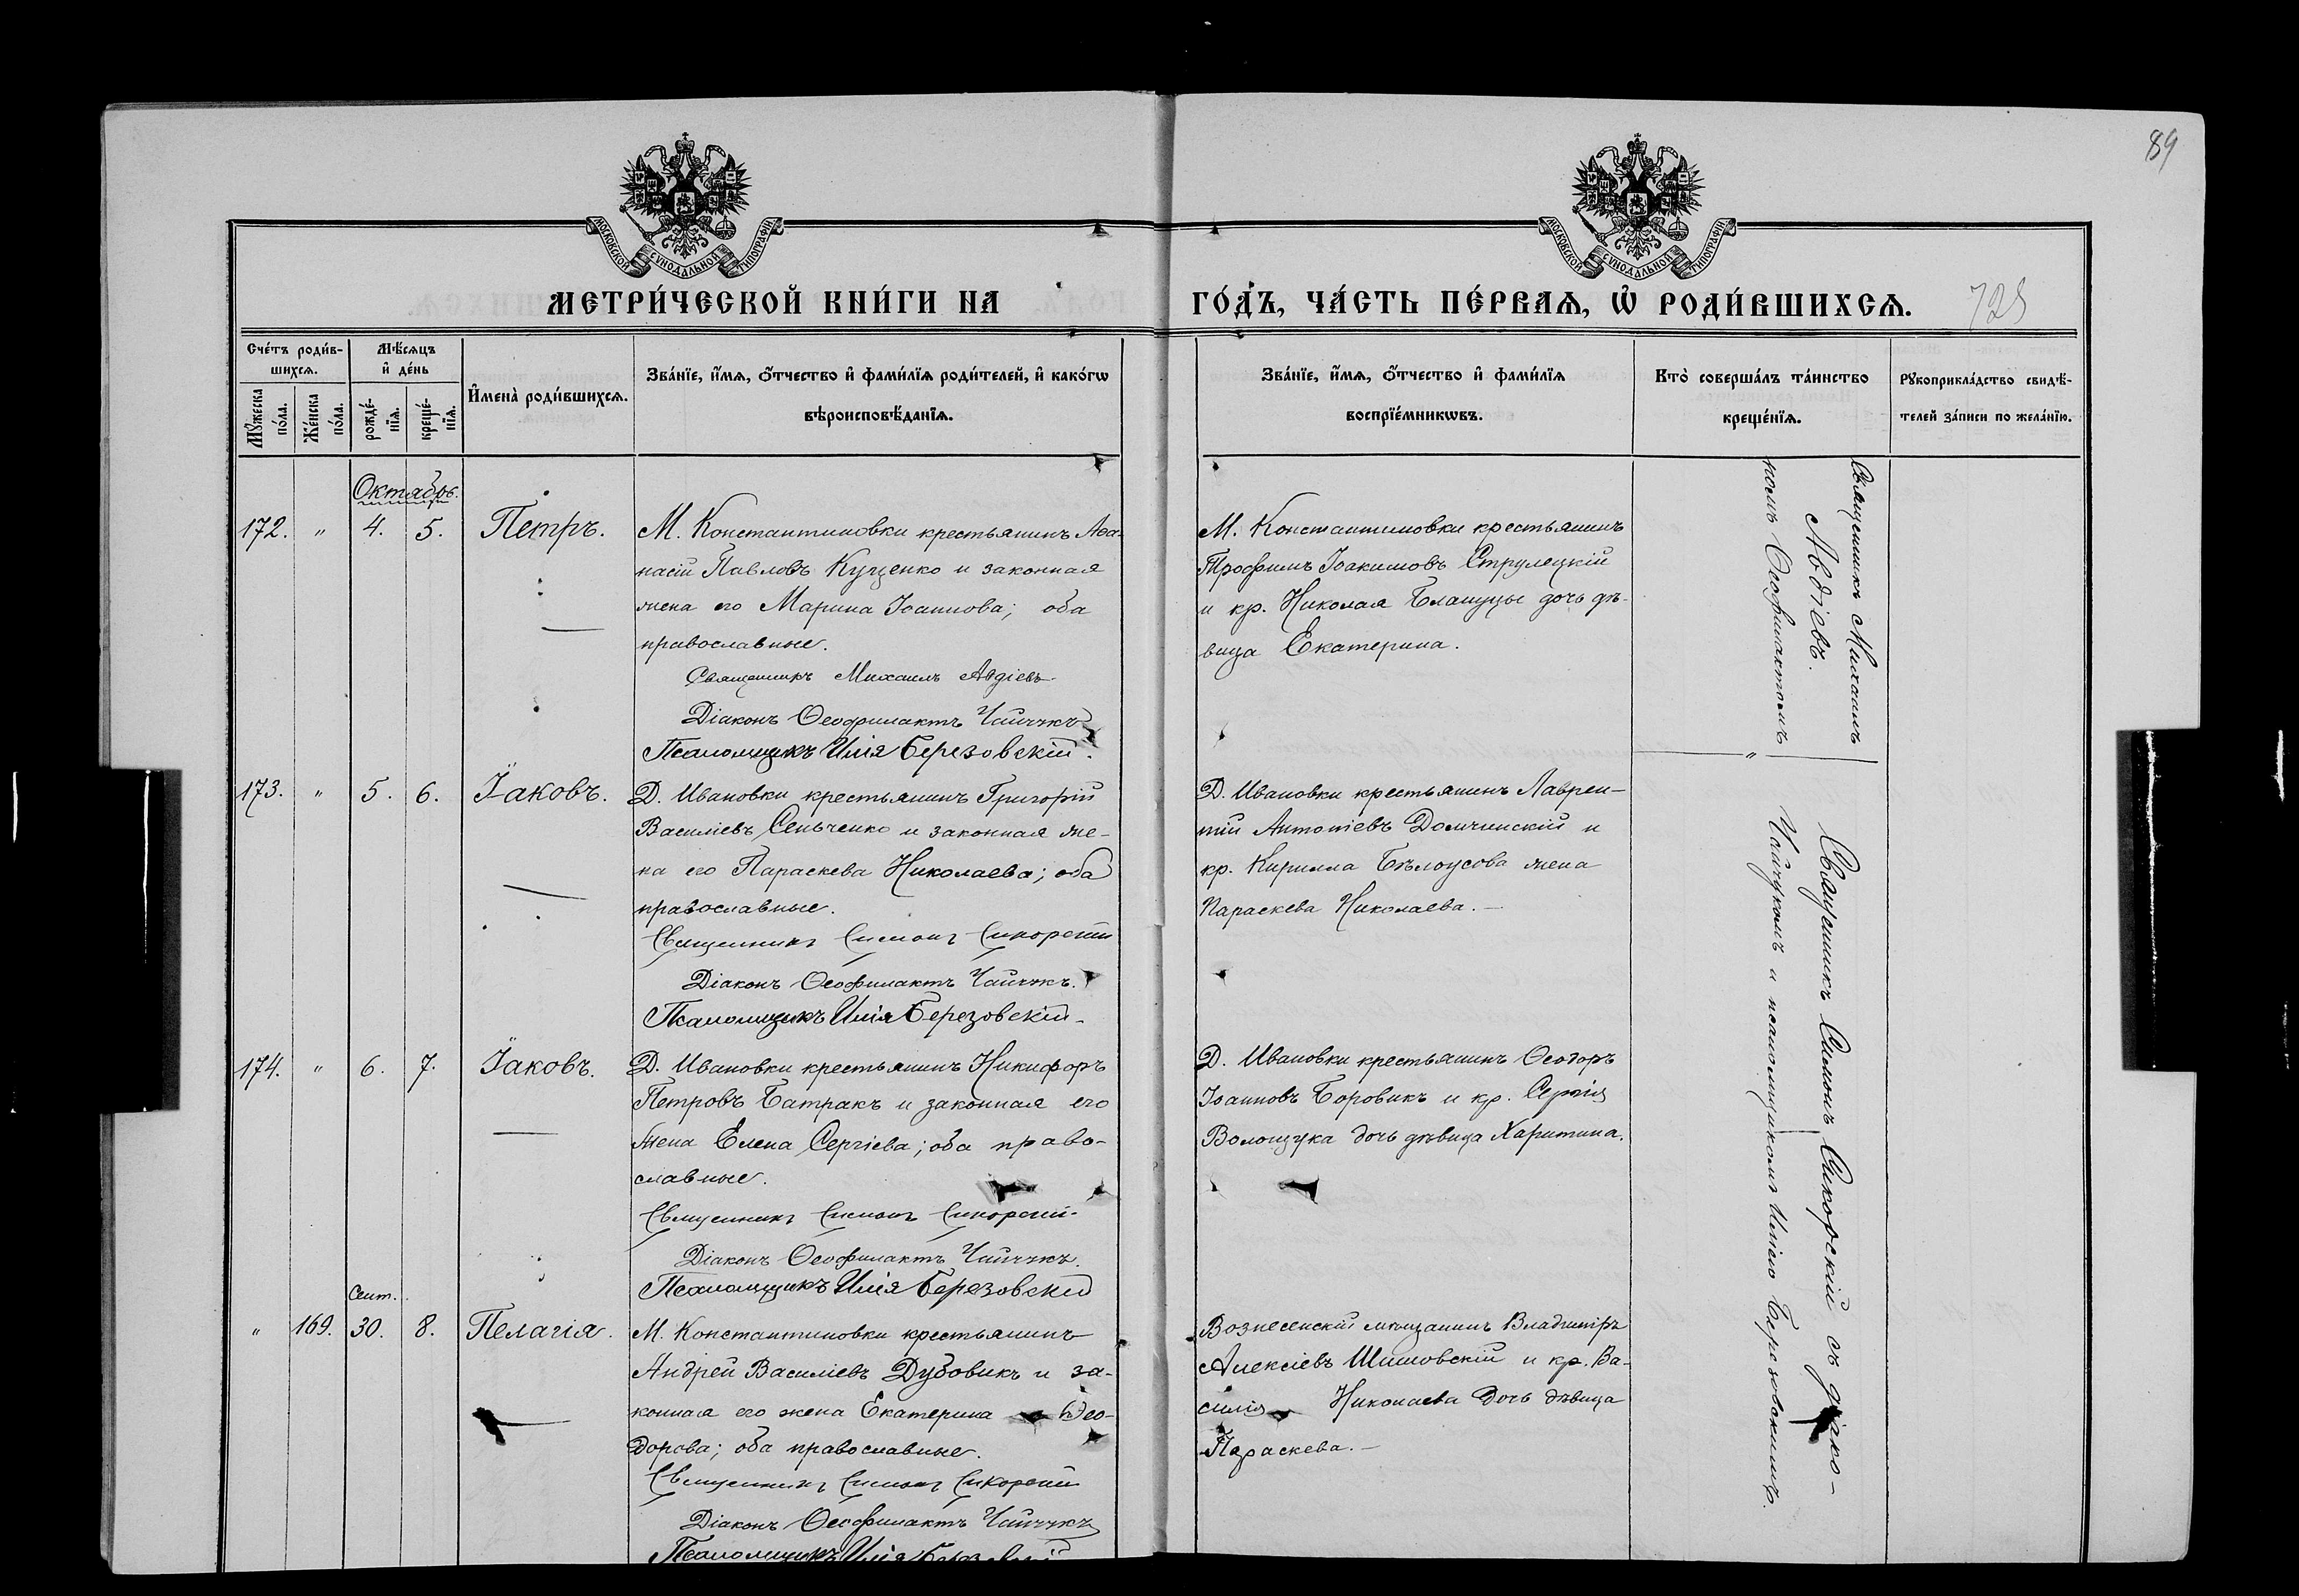 89
МОСКОВСКОЙ СУНОДАЛЬНОЙ ТИПОГРАФІИ
МОСКОВСКОЙ СУНОДАЛЬНОЙ ТИПОГРАФІИ
МЕТРИ́ЧЕСКОЙ КНИ́ГИ НА ГО́ДЪ, ЧА́СТЬ ПЕ́РВАѦ, Ѡ҆ РОДИ́ВШИХСѦ.
725
Сче́тъ роди́в-
шихсѧ.
Мꙋ́жеска по́ла.
Же́нска по́ла.
Мѣ́сѧцъ
и҆ де́нь
рожде́-
нїѧ.
креще́-
нїѧ.
И҆мена̀ роди́вшихсѧ.
Зва́нїе, и҆́мѧ, о҆́тчество и҆ фами́лїѧ роди́телей, и҆ како́гѡ
вѣроисповѣ́данїѧ.
Зва́нїе, и҆́мѧ, о҆́тчество и҆ фами́лїѧ
воспрїе́мникѡвъ.
Кто̀ соверша́лъ та́инство
креще́нїѧ.
Рꙋкоприкла́дство свидѣ́-
телей за́писи по жела́нїю.
Октябрь.
172. " 4. 5. Петръ.
М. Константиновки крестьянинъ Аѳа-
насій Павловъ Куценко и законная
жена его Марина Іоаннова; оба
православные.
Священникъ Михаилъ Авдіевъ
Діаконъ Ѳеофилактъ Чайчукъ
Псаломщикъ Илія Березовскій.
М. Константиновки крестьянинъ
Трофимъ Іоакимовъ Струлецкій
и кр. Николая дочь дѣ-
вица Екатерина.
Священникъ Михаилъ
Авдіевъ.
Ѳеофилактомъ
"
173. " 5. 6. Іаковъ.
Д. Ивановки крестьянинъ Григорій
Василіевъ Сеньченко и законная же-
на его Параскева Николаева; оба
православные.
Священникъ Симонъ Сикорскій
Діаконъ Ѳеофилактъ Чайчукъ.
Псаломщикъ Илія Березовскій.
Д. Ивановки крестьянинъ Лаврен-
тій Антоніевъ Домчинскій и
кр. Кирилла Бѣлоусова жена
Параскева Николаева. —
Священникъ Симонъ Сикорскій съ діако-
номъ
Чайчукомъ и псаломщикомъ Иліею Березовскимъ.
174. " 6. 7. Іаковъ.
Д. Ивановки крестьянинъ Никифоръ
Петровъ Батракъ и законная его
жена Елена Сергіева; оба право-
славные.
Священникъ Симонъ Сикорскій
Діаконъ Ѳеофилактъ Чайчукъ.
Псаломщикъ Илія Березовскій
Д. Ивановки крестьянинъ Ѳеодоръ
Іоанновъ Боровикъ и кр. Сергія
Волощука дочь дѣвица Харитина.
Сент.
" 169. 30. 8. Пелагія.
М. Константиновки крестьянинъ
Андрей Василіевъ Дубовикъ и за-
конная его жена Екатерина Ѳео-
дорова; оба православные.
Священникъ Симонъ Сикорскій
Діаконъ Ѳеофилактъ Чайчукъ
Псаломщикъ Илія Березовскій
Вознесенскій мѣщанинъ Владиміръ
Алексіевъ Шишовскій и кр. Ва-
силія Николаева дочь дѣвица
Параскева. —